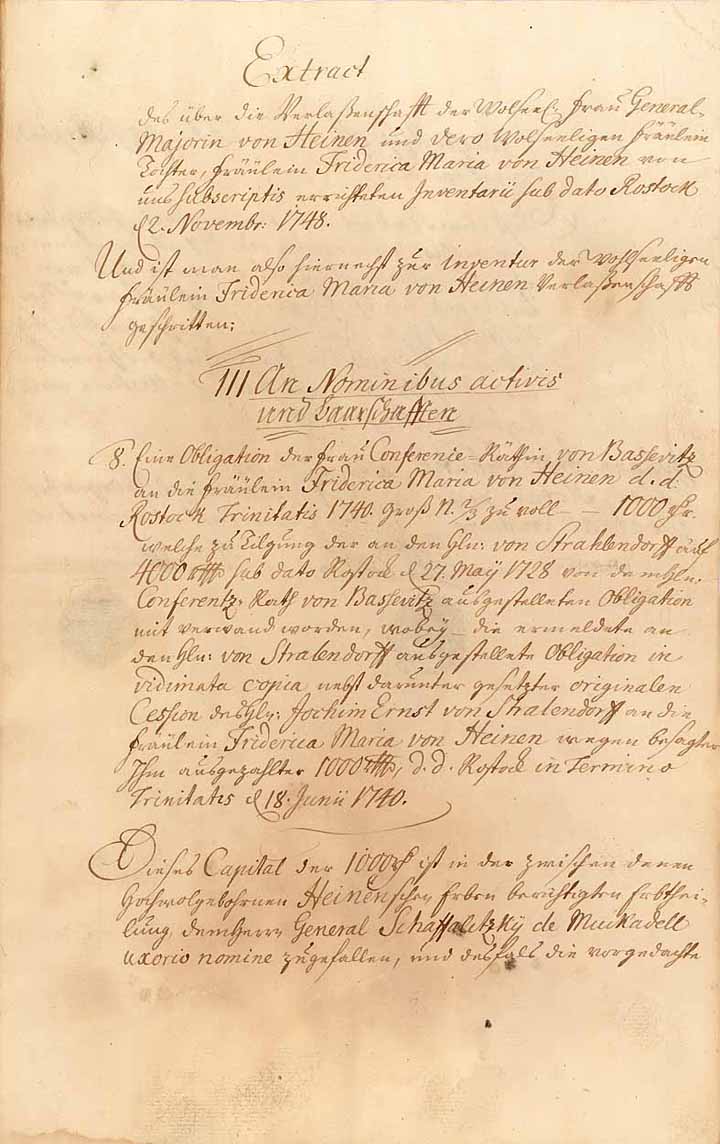 Extract
des über die Verlaßenschafft der Wolseel: Frau General-
Majorin von Heinen und dero Wolseeligen Fräulein
Tochter, Fräulein Friderica Maria von Heinen von
uns subscriptis errichteten Inventarii sub dato Rostock
d 2. Novembr: 1748.
Und ist man also hiernechst zur inventur der Wohlseeligen
Fräulein Friderica Maria von Heinen Verlaßenschafft
geschritten;
III An Nominibus activis
und baarschafften
8. Eine Obligation der Frau Conferenie-Räthin von Bassevitz
an die Fräulein Friderica Maria von Heinen d. d.
Rostock Trinitatis 1740. groß N. 2/3 zu voll - - 1000 Rr.
welche zu Tilgung der an den Hln: von Strahlendorff auf
4000 sub dato Rostock d 27. Maÿ 1728 von dem Hln:
Conferentz-Rath von Bassevitz ausgestelleten Obligation
mit verwand worden, wobeÿ die ermeldete an
den Hln: von Stralendorff ausgestellete Obligation in
vidimata copia nebst darunter gesetzter originalen
Cession des Hln: Jochim Ernst von Stralendorff an die
Fräulein Friderica Maria von Heinen wegen besagter
Ihm ausgezahlter 1000 d. d. Rostock in Termino
Trinitatis d 18. Junii 1740.
Dieses Capital der 1000 ist in der zwischen denen
Hochwolgebohrnen Heinenschen Erben berichtigten Erbthei-
lung dem Herrn General Schaffalitzkÿ de Muckadell
uxorio nomine zugefallen, und desfals die vorgedachte